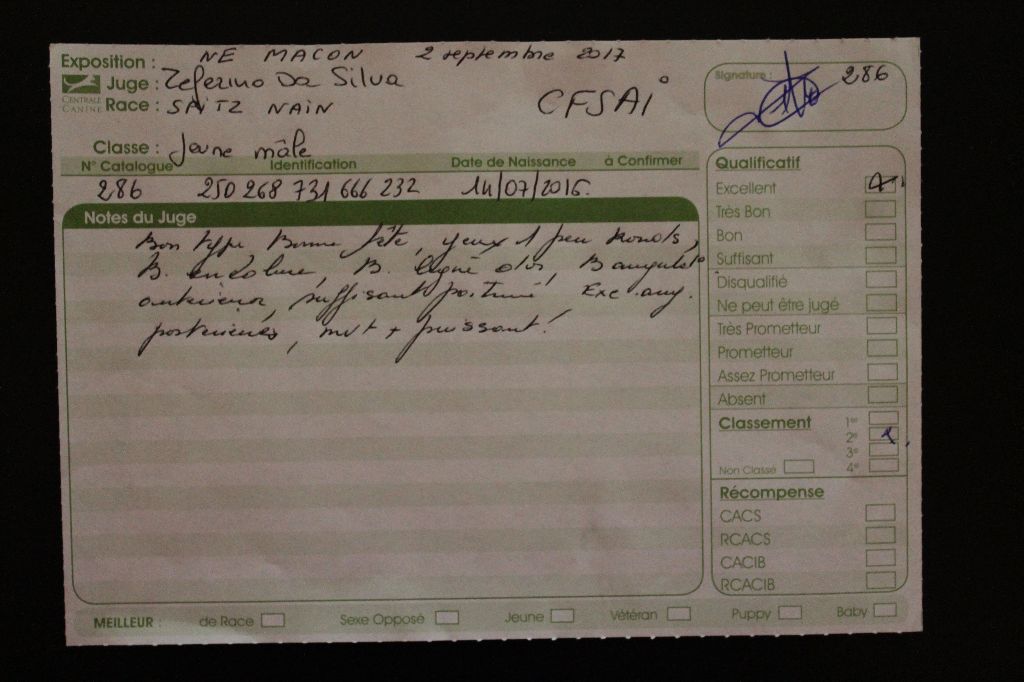 Exposition : NE MACON 2 septembre 2017
Juge : Zeferino Da Silva
CENTRALE CANINE
Race : SPITZ NAIN
CFSAI
Signature : 286
Classe : Jeune mâle
N° Catalogue Identification Date de Naissance à Confirmer
286 250 268 731 666 232 14/07/2016
Notes du Juge
Bon type Bonne tête, yeux 1 peu ronds,
B. encolure, B. ligne dos, B angulat°
antérieur, suffisant poitrine, Exc. ang.
postérieurs, mvt + puissant.
Qualificatif
Excellent
Très Bon
Bon
Suffisant
Disqualifié
Ne peut être jugé
Très Prometteur
Prometteur
Assez Prometteur
Absent
Classement 1er
2e
3e
Non Classé 4e
Récompense
CACS
RCACS
CACIB
RCACIB
MEILLEUR : de Race Sexe Opposé Jeune Vétéran Puppy Baby